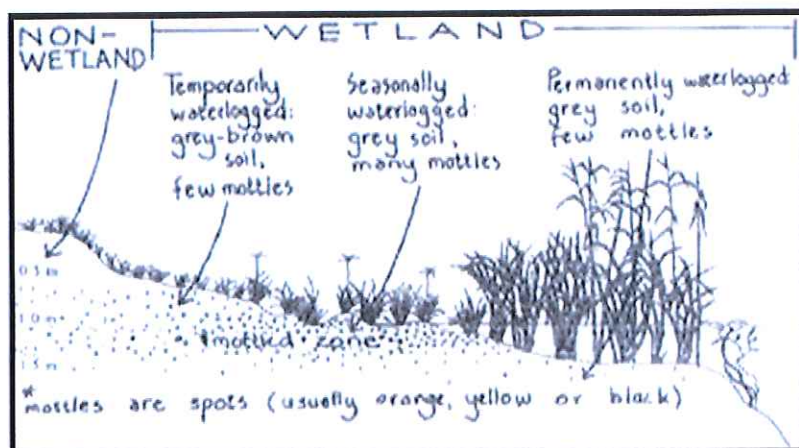 NON-
WETLAND
WETLAND
Temporarily
waterlogged:
grey-brown
soil,
few mottles
Seasonally
waterlogged:
grey soil,
many mottles
Permanently waterlogged
grey soil,
few mottles
0.5 m
1.0 m
1.5 m
* mottled zone
* mottles are spots (usually orange, yellow or black)